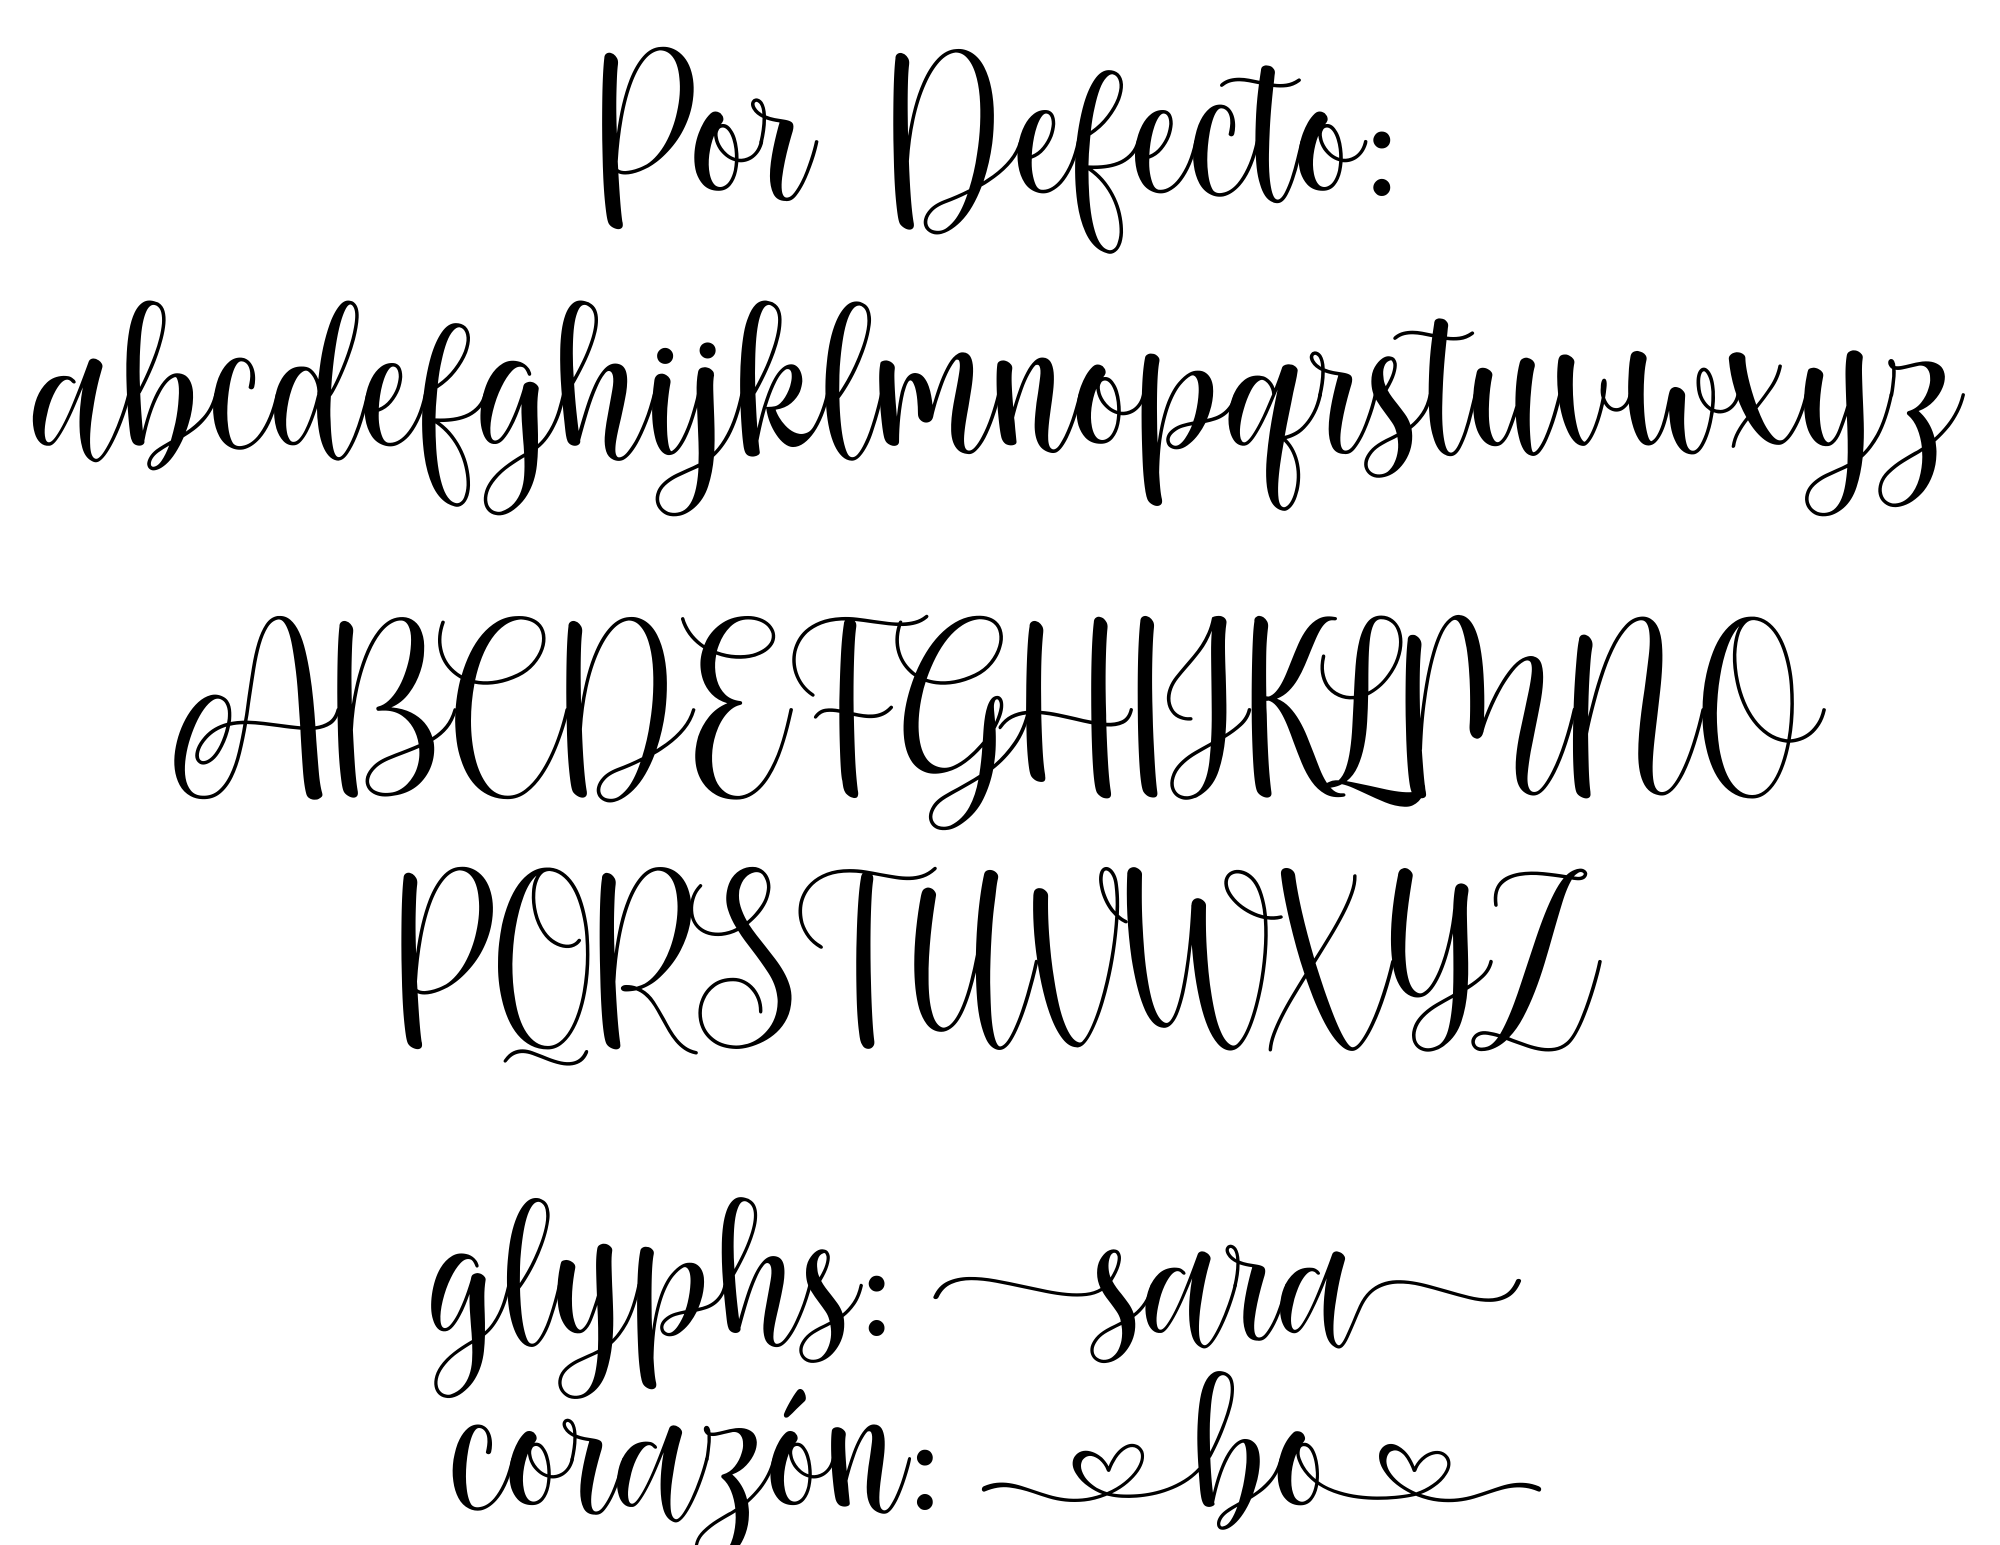 Por Defecto:
abcdefghijklmnopqrstuvwxyz
ABCDEFGHIJKLMNO
PQRSTUVWXYZ
glyphs: sara
corazón: bo